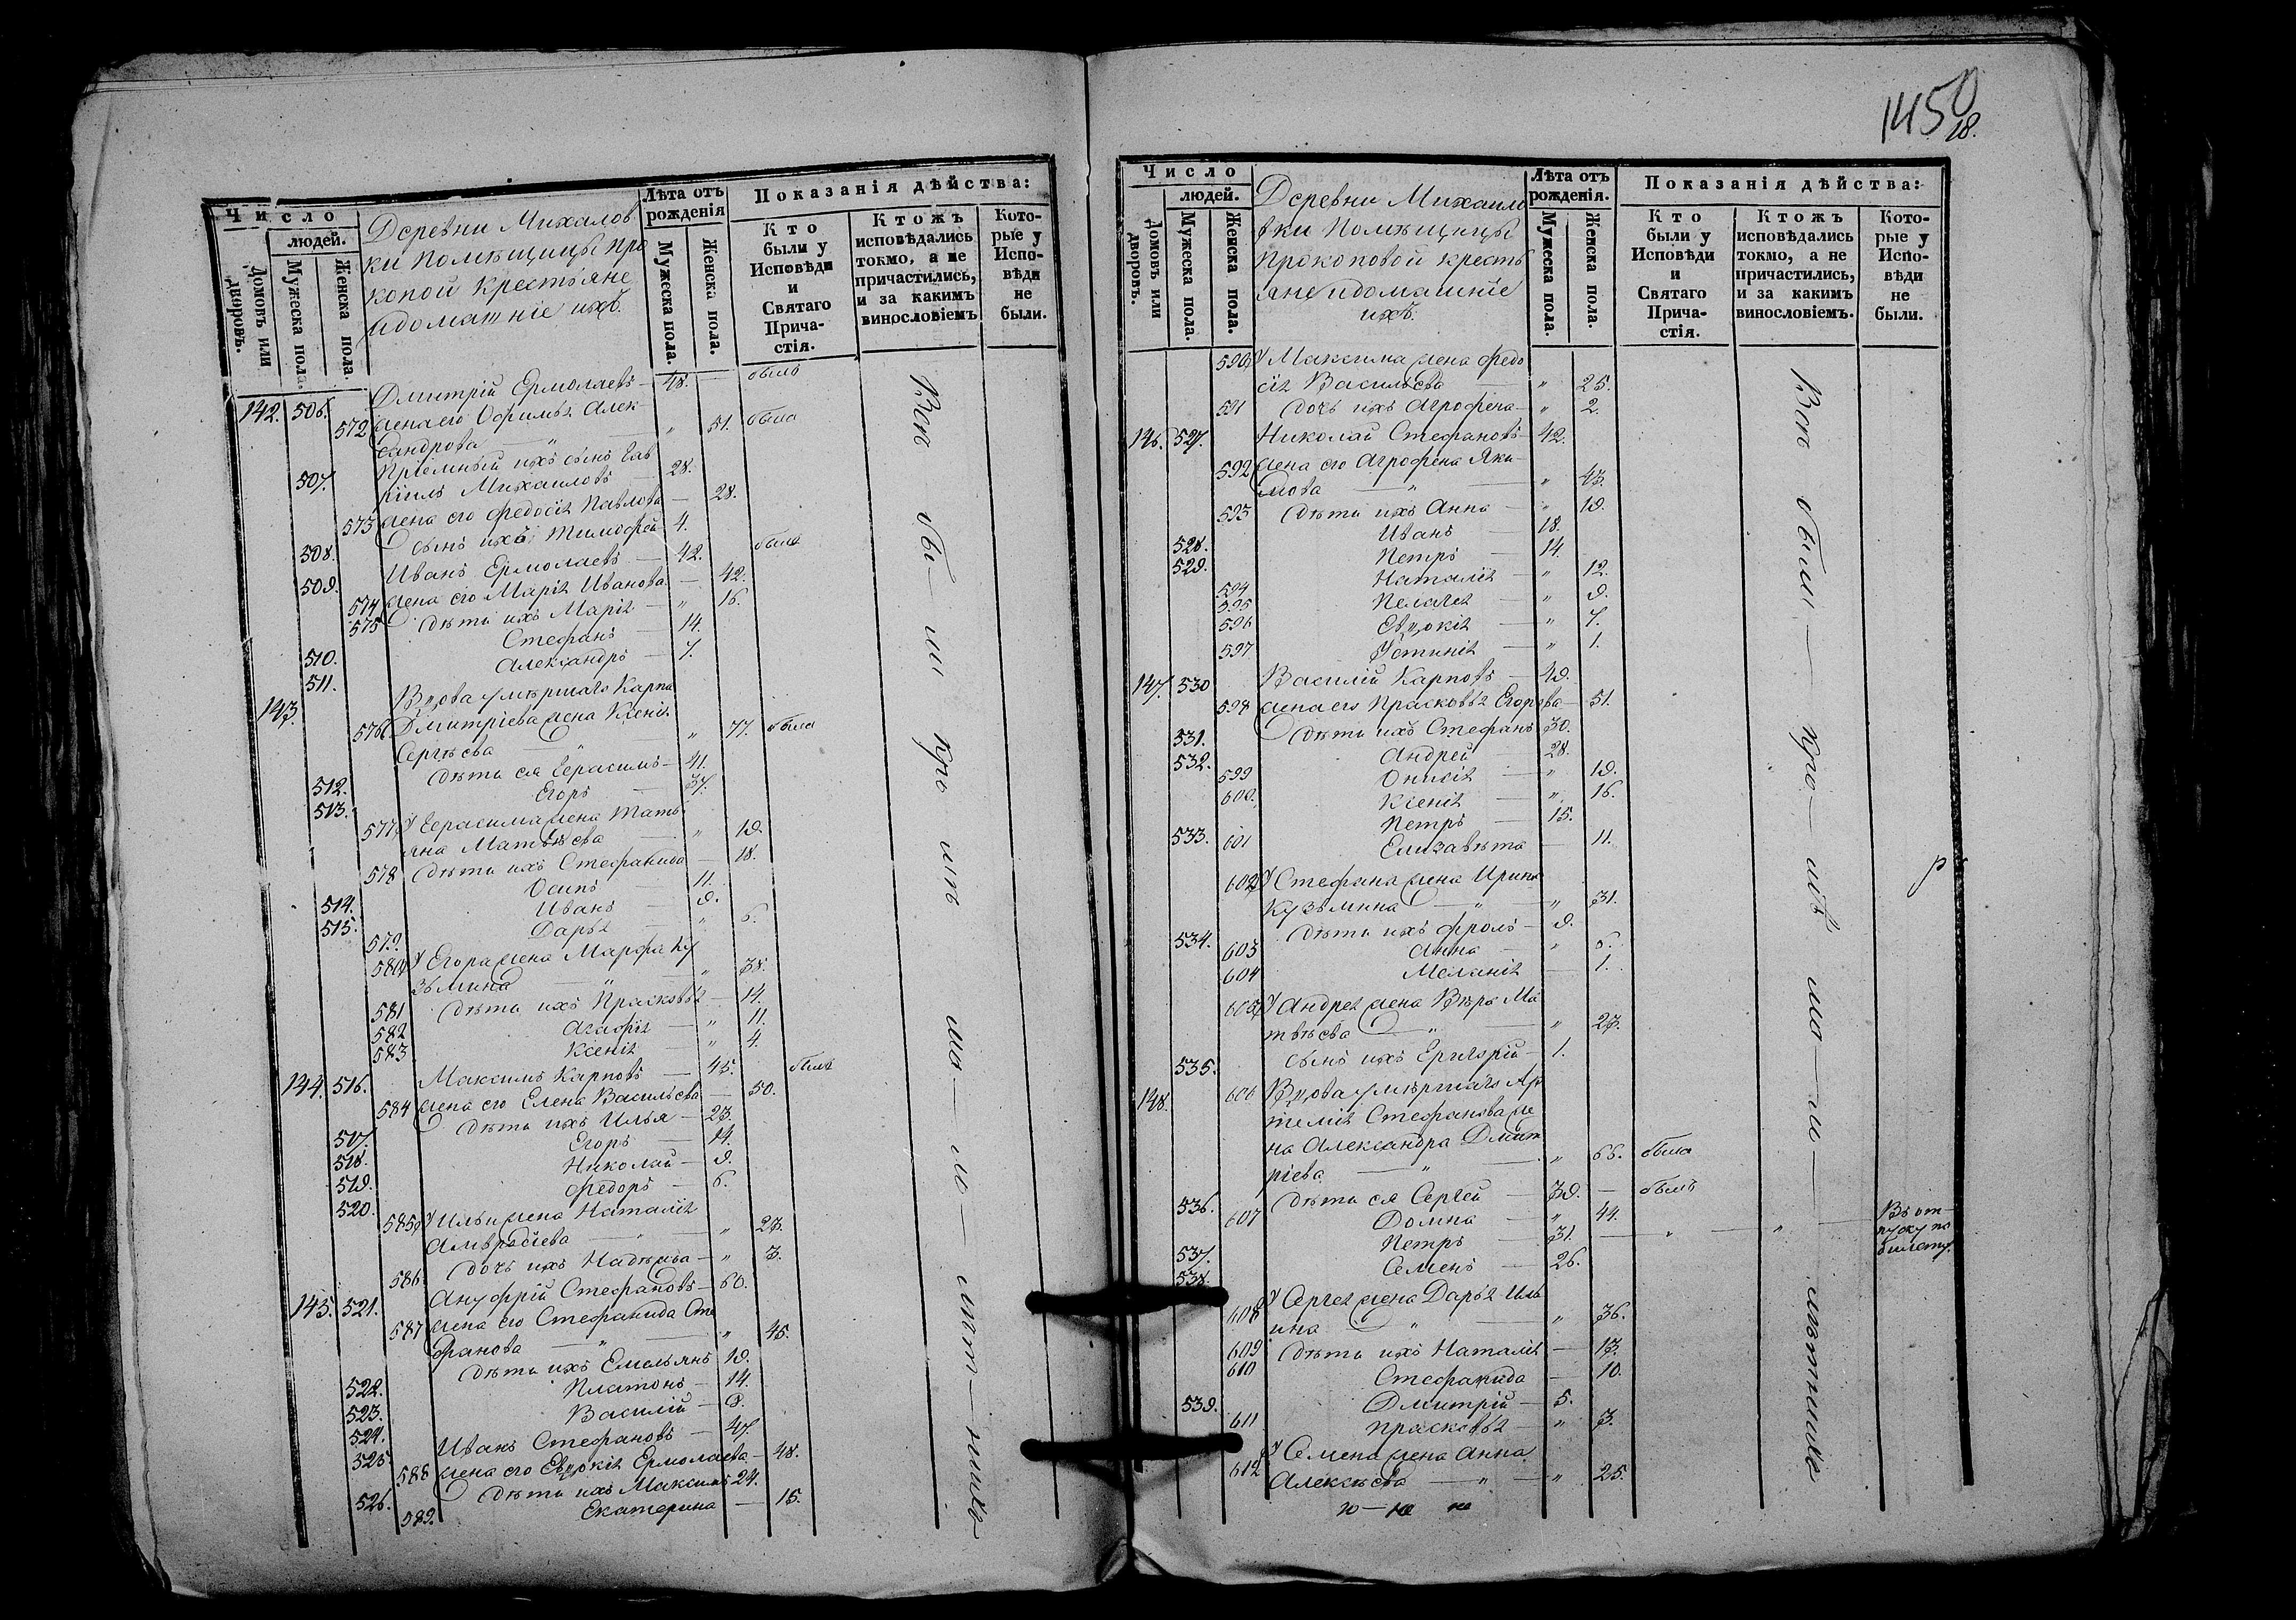 1450
18.
Число
людей.
Домовъ или дворовъ.
Мужеска пола.
Женска пола.
Деревни Михалов
ки Помѣщицы Про
копой Крестьяне
идомашніе ихъ.
Лѣта отъ рожденія
Мужеска пола.
Женска пола.
Показанія дѣйства:
Кто были у Исповѣди и Святаго Причастія.
Ктожъ исповѣдались токмо, а не причастились, и за какимъ винословіемъ
Которые у Исповѣди не были.
142. 506. Дмитрій Ермолаевъ — 48. — былъ
572 жена его Офимья Алек-
сандрова — " — " 51. была
507. Пріемный их сынъ Гав
ріилъ Михаиловъ 28.
573 жена его Федосія Павлова — 28.
508. сынъ ихъ Тимофей 4.
509. Иванъ Ермолаевъ — 42. былъ
574 жена его Марія Иванова — 42.
575 Дѣти ихъ Марія — " 16.
510. Стефанъ — 14.
511. Александръ — 7.
143. Вдова умершаго Карпа
576 Дмитріева жена Ксенія
Сергѣева — " 77. была
512. Дѣти ея Герасимъ — 41.
513. Егоръ — 37.
577 У Герасима жена Тать
яна Матвѣева — " 39.
578 Дѣти ихъ Стефанида — 18.
514. Осипъ — 11.
515. Иванъ — 9.
579. Дарья — " 6.
580 У Егора жена Марфа Ку
зьмина — " — " 38.
581 Дѣти ихъ Прасковья — 14.
582 Агафія — " 11.
583 Ксенія — " 4.
144. 516. Максимъ Карповъ — 45. былъ
584 жена его Елена Васильева — 50.
517. Дѣти ихъ Илья — 23.
518. Егоръ — 14.
519. Николай — 9.
520. Федоръ — 6.
585 У Ильи жена Наталія
— " — " 23.
586 дочь ихъ Надежда — " 3.
145. 521. Ануфрій Стефановъ — 60.
587 жена его Стефанида Сте
фанова — " — " 45.
522. Дѣти ихъ Емельянъ 19.
523. Платонъ — 14.
524. Василій — 9.
525 Иванъ Стефановъ — 47.
588 жена его Евдокія Ермолаева — 48.
526. Дѣти ихъ Максимъ 24.
589. Екатерина — 15.
Число
людей.
Домовъ или дворовъ.
Мужеска пола.
Женска пола.
Деревни Михаило
вки Помѣщицы
Прокоповой кресть
яне идомашніе
ихъ.
Лѣта отъ рожденія.
Мужеска пола.
Женска пола.
Показанія дѣйства:
Кто были у Исповѣди и Святаго Причастія.
Ктожъ исповѣдались токмо, а не причастились, и за какимъ винословіемъ.
Которые у Исповѣди не были.
590 У Максима жена Федо
сія Васильева — " 25.
591 дочь ихъ Агрофена — " 2.
146. 527. Николай Стефановъ — 42.
592 жена его Агрофена Яки-
мова — " — " 43.
593 Дѣти ихъ Анна — " 19.
528. Иванъ — 18.
529. Петръ — 14.
594 Наталія — " 12.
595 Пелагея — " 9.
596 Евдокія — " 7.
597 Устинія — " 1.
147. 530 Василій Карповъ — 49.
598 жена его Прасковья Егорова — 51.
531. Дѣти ихъ Стефанъ 30.
532. Андрей — 28.
599 Онисія — " 19.
600. Ксенія — " 16.
533. Петръ — 15.
601 Елизавѣта — 11.
602 У Стефана жена Ирина
Кузьмина — " — " 31.
534. Дѣти ихъ Фролъ — 9.
603 Анна — " 6.
604 Меланія — 1.
605 У Андрея жена Вѣра Ма
твѣева — " — " 23.
535. сынъ ихъ Григорій — 1.
148. 606 Вдова умершаго Ар
темія Стефанова же
на Александра Дмит
ріева — " — " 66. была
536. Дѣти ея Сергей — 39. — былъ
607 Домна — " 44.
537. Петръ — 31. — " — " — Въ от-
пуску по
билету.
538. Семенъ — 26.
608 У Сергея жена Дарья Иль
ина — " — " 36.
609 Дѣти ихъ Наталія — 13.
610 Стефанида — 10.
539. Дмитрій — 5.
611 Прасковья — " 3.
612 У Семена жена Анна
Алексѣева — " — " 25.